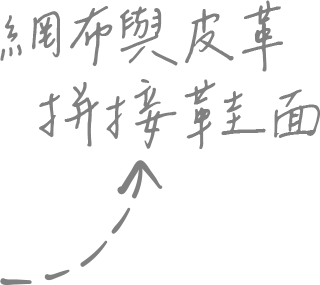 網布與皮革
拼接鞋面